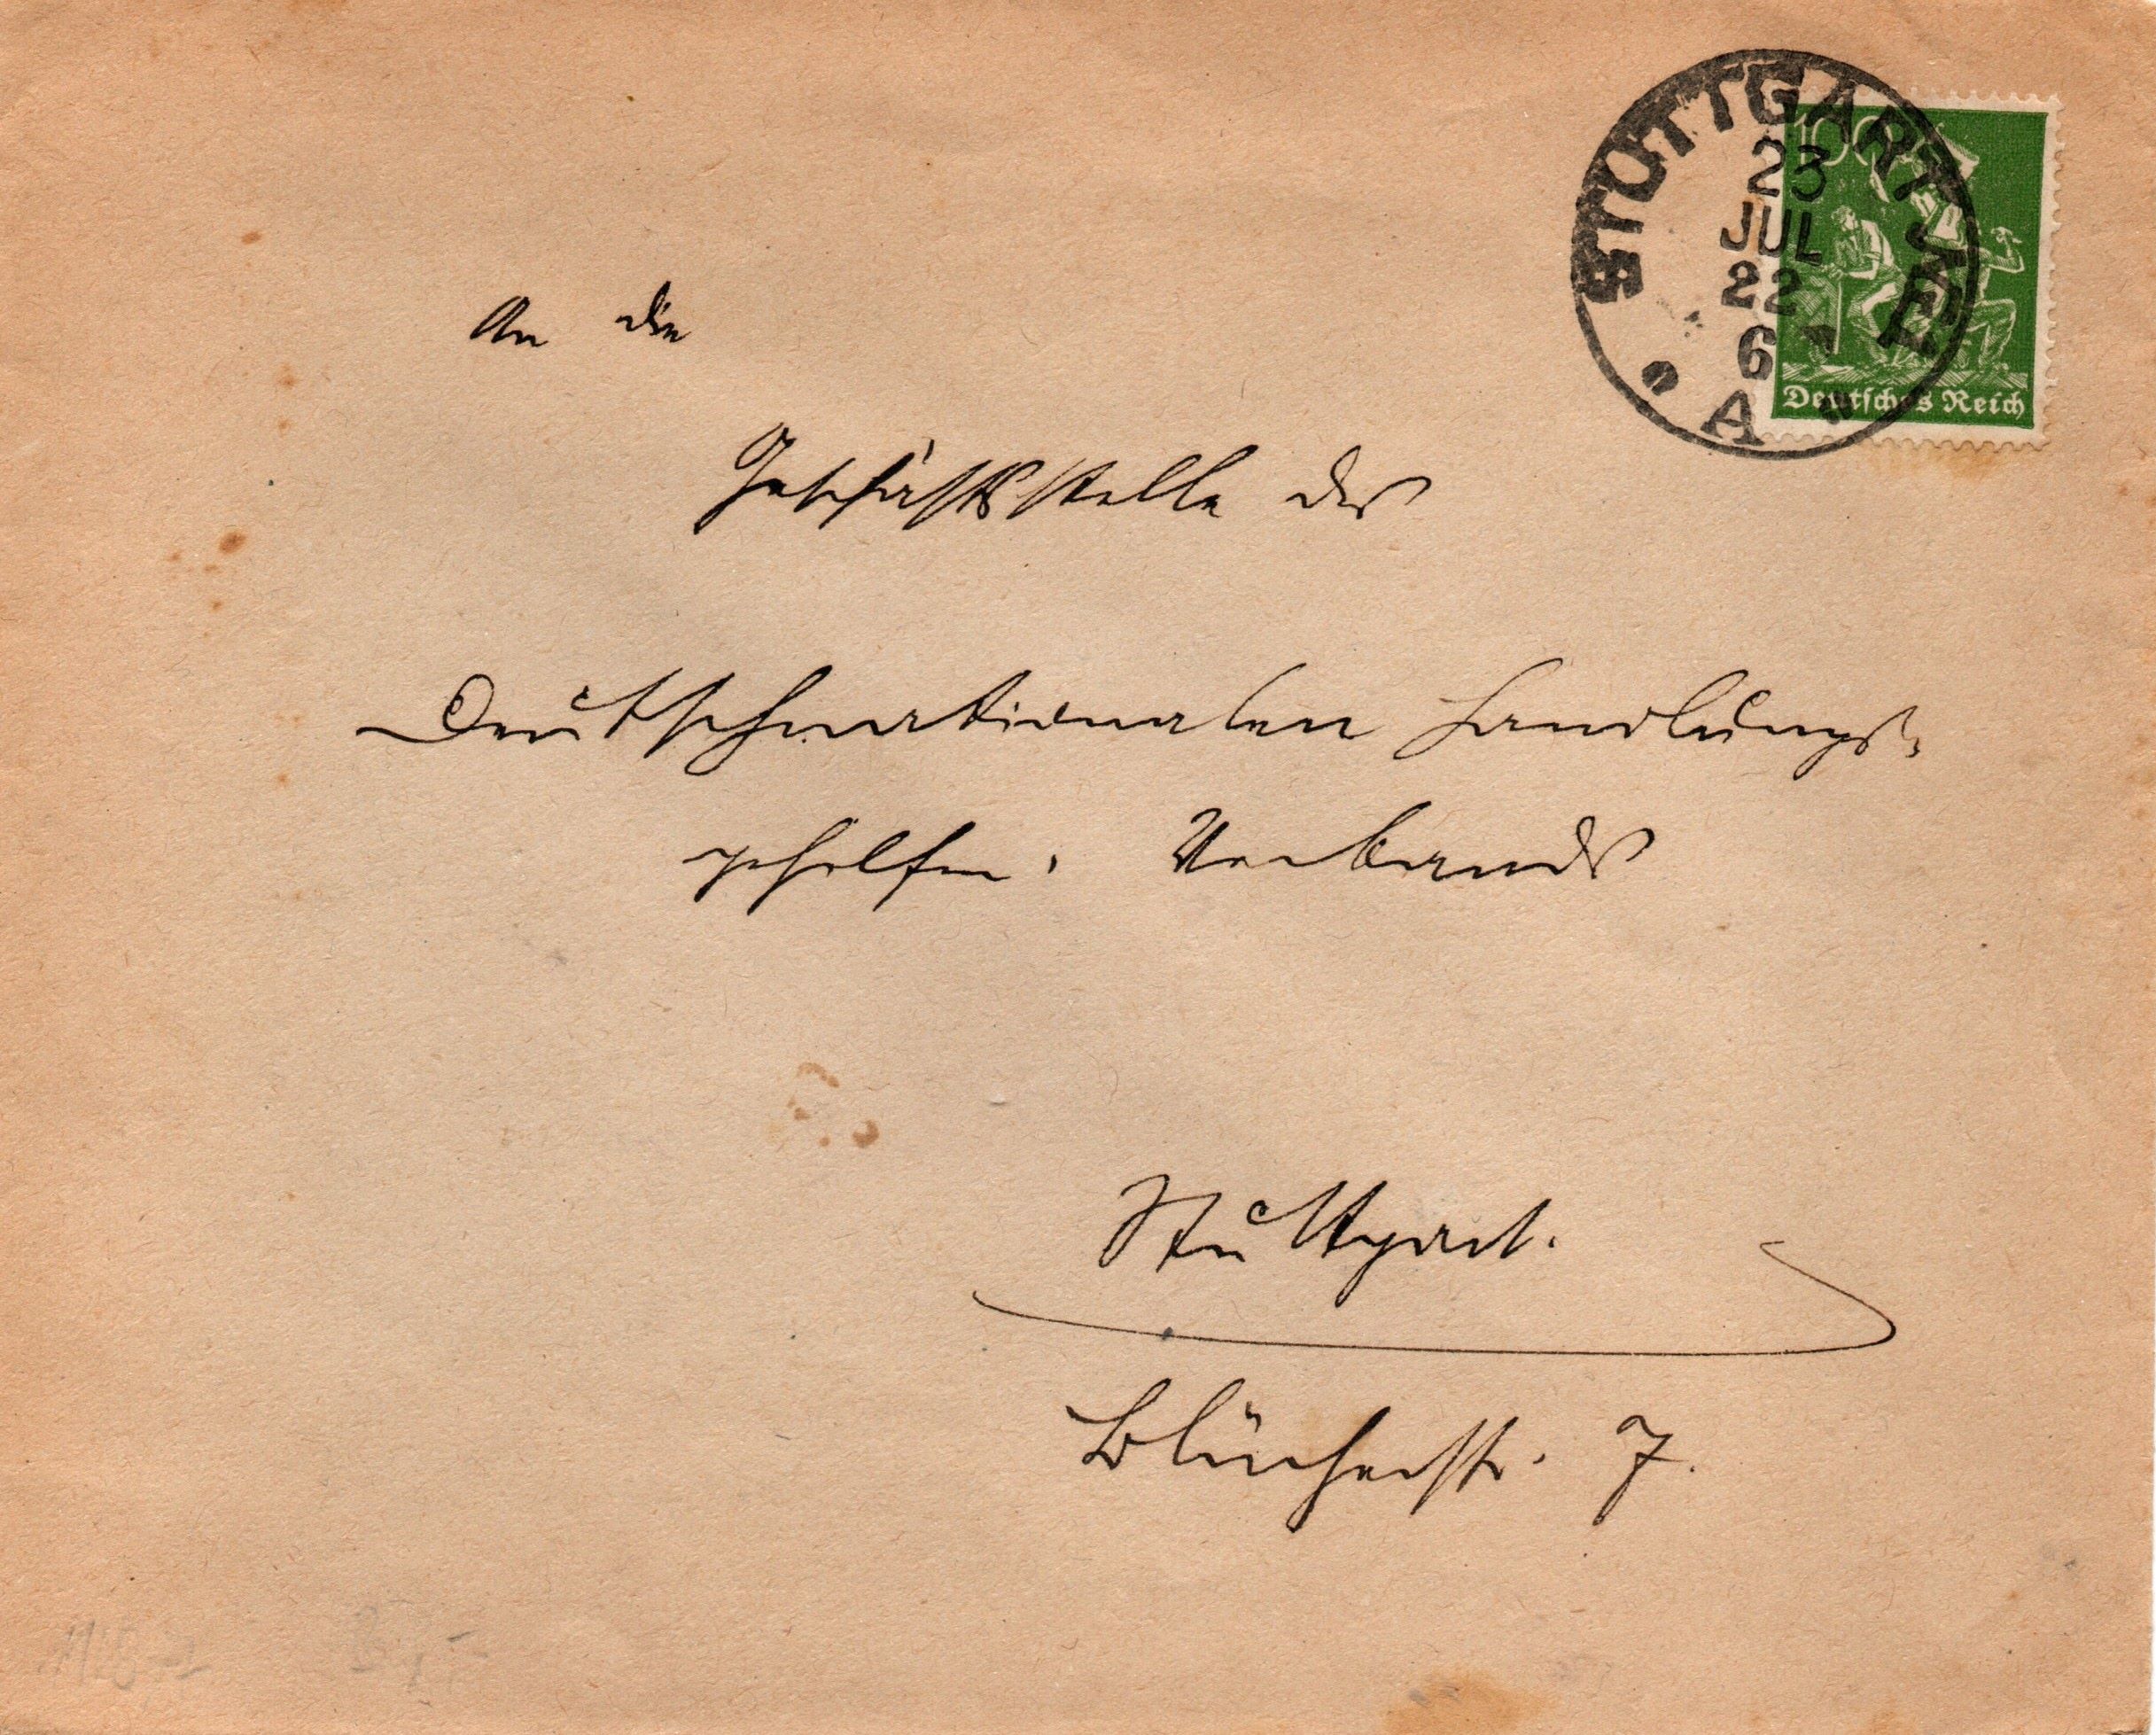 STUTTGART WEF
23
JUL
22
6
A
100
Deutsches Reich
An die
Geschäftsstelle des
Deutschnationalen Handlungs-
gehilfen-Verbands
Stuttgart.
Blücherstr. 7.